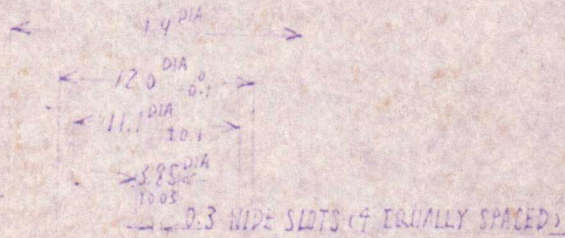 1.9 DIA
12.0 DIA 0 -0.1
11.1 DIA ±0.1
3.85 DIA ±0.03
0.3 WIDE SLOTS (4 EQUALLY SPACED)